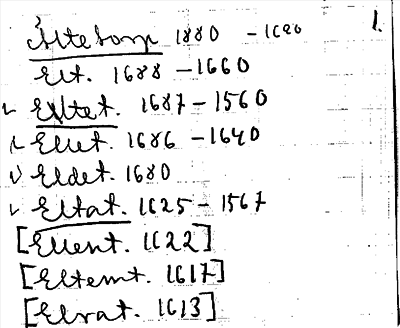 1880 - 1680 1.
Elt. 1688 - 1660
Elltet. 1687 - 1560
Ellet. 1686 - 1640
Eldet. 1680
Eltat. 1625 - 1567
[Ellent. 1622]
[Eltemt. 1617]
[Elvat. 1613]